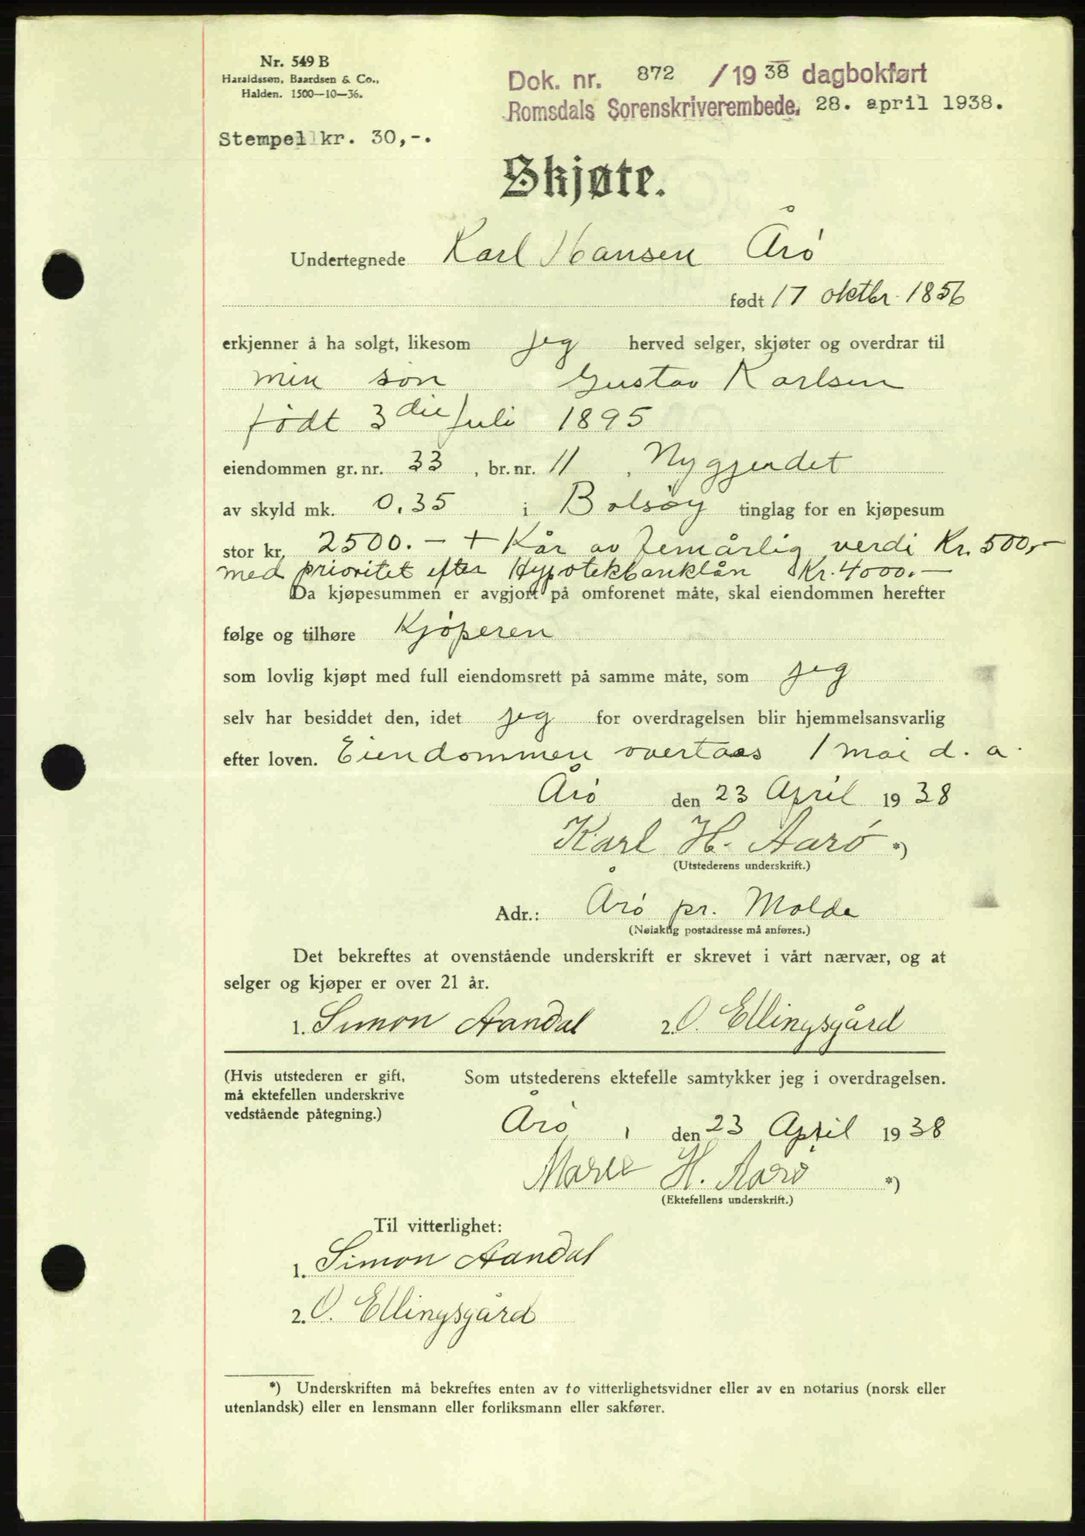 Nr. 549 B
Haraldssøn, Baardsen & Co.,
Halden. 1500—10—36.
Dok. nr. 872 / 1938 dagbokført
Romsdals Sorenskriverembede, 28. april 1938.
Stempel kr. 30,-.
Skjøte.
Undertegnede Karl Hansen Årö
født 17 oktbr. 1856
erkjenner å ha solgt, likesom jeg herved selger, skjøter og overdrar til
min søn Gustav Karlsen
født 3die Juli 1895
eiendommen gr. nr. 33, br. nr. 11, Nygjerdet
av skyld mk. 0.35 i Bolsöy tinglag for en kjøpesum
stor kr. 2500.- + Kår av femårlig verdi Kr. 500,-
med prioritet efter Hypotekbanklån Kr. 4000.-
Da kjøpesummen er avgjort på omforenet måte, skal eiendommen herefter
følge og tilhøre Kjöperen
som lovlig kjøpt med full eiendomsrett på samme måte, som jeg
selv har besiddet den, idet jeg for overdragelsen blir hjemmelsansvarlig
efter loven. Eiendommen overtaes 1 mai d. a.
Årö den 23 April 1938
Karl H. Aarö *)
(Utstederens underskrift.)
Adr.: Årö pr. Molde
(Nøiaktig postadresse må anføres.)
Det bekreftes at ovenstående underskrift er skrevet i vårt nærvær, og at
selger og kjøper er over 21 år.
1. Simon Aandal 2. O. Ellingsgård
(Hvis utstederen er gift, Som utstederens ektefelle samtykker jeg i overdragelsen.
må ektefellen underskrive
vedstående påtegning.)
Årö, den 23 April 1938
Marie H. Aarö *)
(Ektefellens underskrift.)
Til vitterlighet:
1. Simon Aandal
2. O. Ellingsgård
*) Underskriften må bekreftes enten av to vitterlighetsvidner eller av en notarius (norsk eller
utenlandsk) eller en lensmann eller forliksmann eller sakfører.